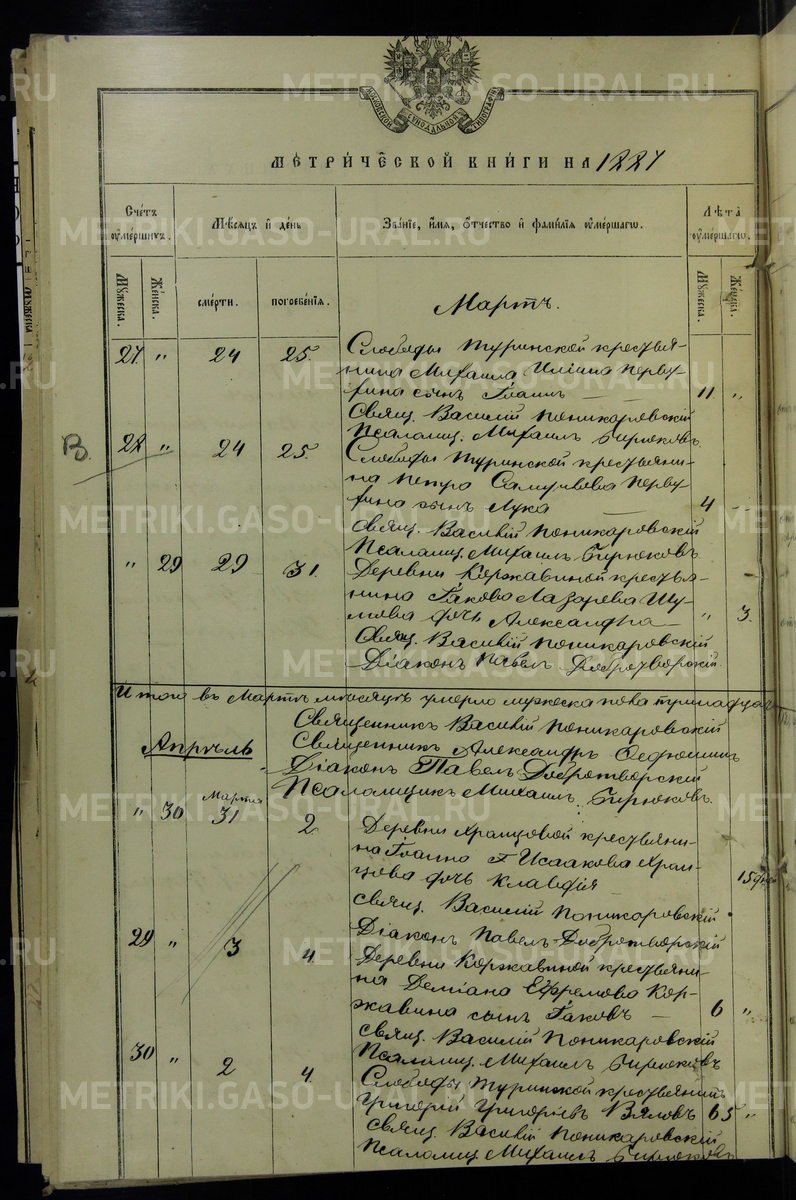 МОСКОВСКОЙ СѴНОДАЛЬНОЙ ТИПОГРАФІИ
МЕТРИ́ЧЕСКОЙ КНИ́ГИ НА 1887
Сче́тъ ѹме́ршихъ.
Мѣ́сяцъ и҆ де́нь
Зва́нїе, и҆́мя, ѻ҆́тчество и҆ фами́лїя ѹме́ршагѡ.
Лѣ́та ѹме́ршагѡ.
Мꙋ́жеска.
Же́нска.
сме́рти.
погребе́нїя.
Мꙋ́жеска.
Же́нска.
Мартъ.
27 " 24 25 Слободы Туринской крестья-
нина Михаила Ильина Перву-
хина сынъ Іоаннъ — 11 "
Свящ. Василій Поникаровскій
Псаломщ. Михаилъ Бирюковъ
В. 28 " 24 25. Слободы Туринской крестьяни-
на Петра Самуилова Перву-
хина сынъ Лука — 4
Свящ. Василій Поникаровскій
Псаломщ. Михаилъ Бирюковъ
" 29 29 31. Деревни Коржавиной крестья-
нина Іакова Лазарева Шу-
мова дочь Александра — " 3.
Свящ. Василій Поникаровскій
Діаконъ Павелъ Добротворскій.
Итого въ Мартѣ мѣсяцѣ умерло мужеска пола
Священникъ Василій Поникаровскій
Апрѣль
Священникъ Александръ
Діаконъ Павелъ Добротворскій
Псаломщикъ Михаилъ Бирюковъ.
" 30 Марта 31 2 Деревни Храмцовой крестьяни-
на Іоанна Исаакова Храм-
цова дочь Клавдія — 15 дней
Свящ. Василій Поникаровскій
Діаконъ Павелъ Добротворскій
29 " 3 4. Деревни Коржавиной крестьяни-
на Деміана Ефремова Кор-
жавина сынъ Іаковъ — 6 "
Свящ. Василій Поникаровскій
Псаломщ. Михаилъ Бирюковъ
30 " 2 4. Слободы Туринской крестьянинъ
Григорій Григорьевъ Вяловъ 65 "
Свящ. Василій Поникаровскій
Псаломщ. Михаилъ Бирюковъ
METRIKI.GASO-URAL.RU